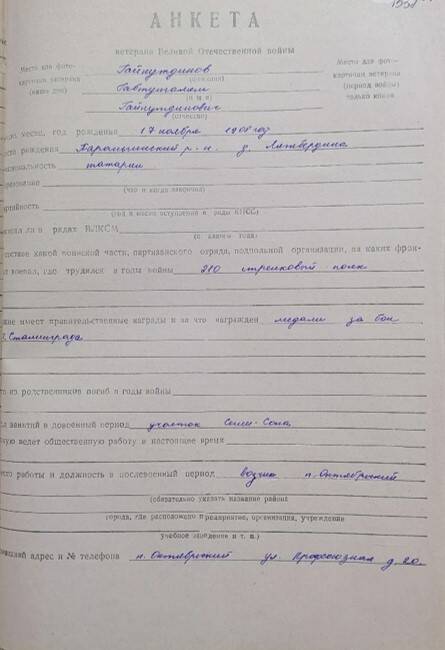 АНКЕТА
ветерана Великой Отечественной войны
Место для фото-
карточки ветерана
(наши дни)
Гайнутдинов
(фамилия)
(имя)
Гайнутдинович
(отчество)
Место для фото-
карточки ветерана
(период войны)
только копия
место, год рождения 17 ноября 1908 год
рождения р-н. д.
татарин
(что и когда закончил)
(год и место вступления в ряды КПСС)
ли в рядах ВЛКСМ
(с какого года)
какой воинской части, партизанского отряда, подпольной организации, на каких фрон-
воевал, где трудился в годы войны 210 стрелковый полк
имеет правительственные награды и за что награжден медали за бои
Сталинграда
из родственников погиб в годы войны
занятий в довоенный период участок
ведет общественную работу в настоящее время
работы и должность в послевоенный период возчик п. Октябрьский
(обязательно указать название района
города, где расположено предприятие, организация, учреждение
учебное заведение и т. п.)
адрес и № телефона п. Октябрьский ул. Профсоюзная д. 20.